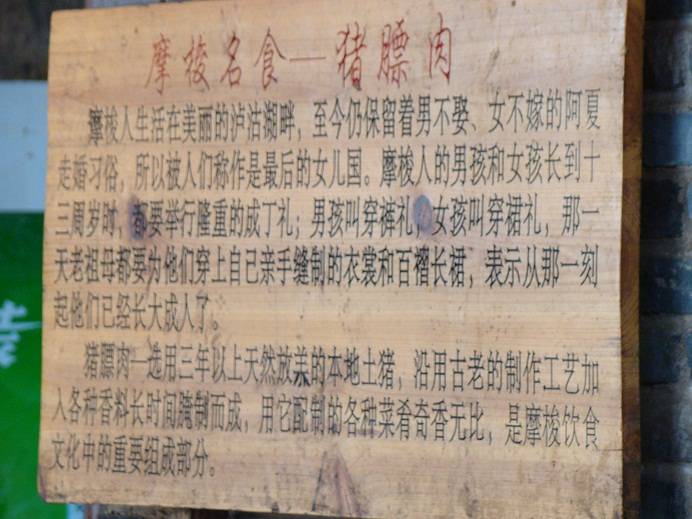 摩梭名食—猪膘肉
摩梭人生活在美丽的泸沽湖畔，至今仍保留着男不娶、女不嫁的阿夏
走婚习俗，所以被人们称作是最后的女儿国。摩梭人的男孩和女孩长到十
三周岁时，都要举行隆重的成丁礼；男孩叫穿裤礼，女孩叫穿裙礼，那一
天老祖母都要为他们穿上自己亲手缝制的衣裳和百褶长裙，表示从那一刻
起他们已经长大成人了。
猪膘肉—选用三年以上天然放养的本地土猪，沿用古老的制作工艺加
入各种香料长时间腌制而成，用它配制的各种菜肴奇香无比，是摩梭饮食
文化中的重要组成部分。